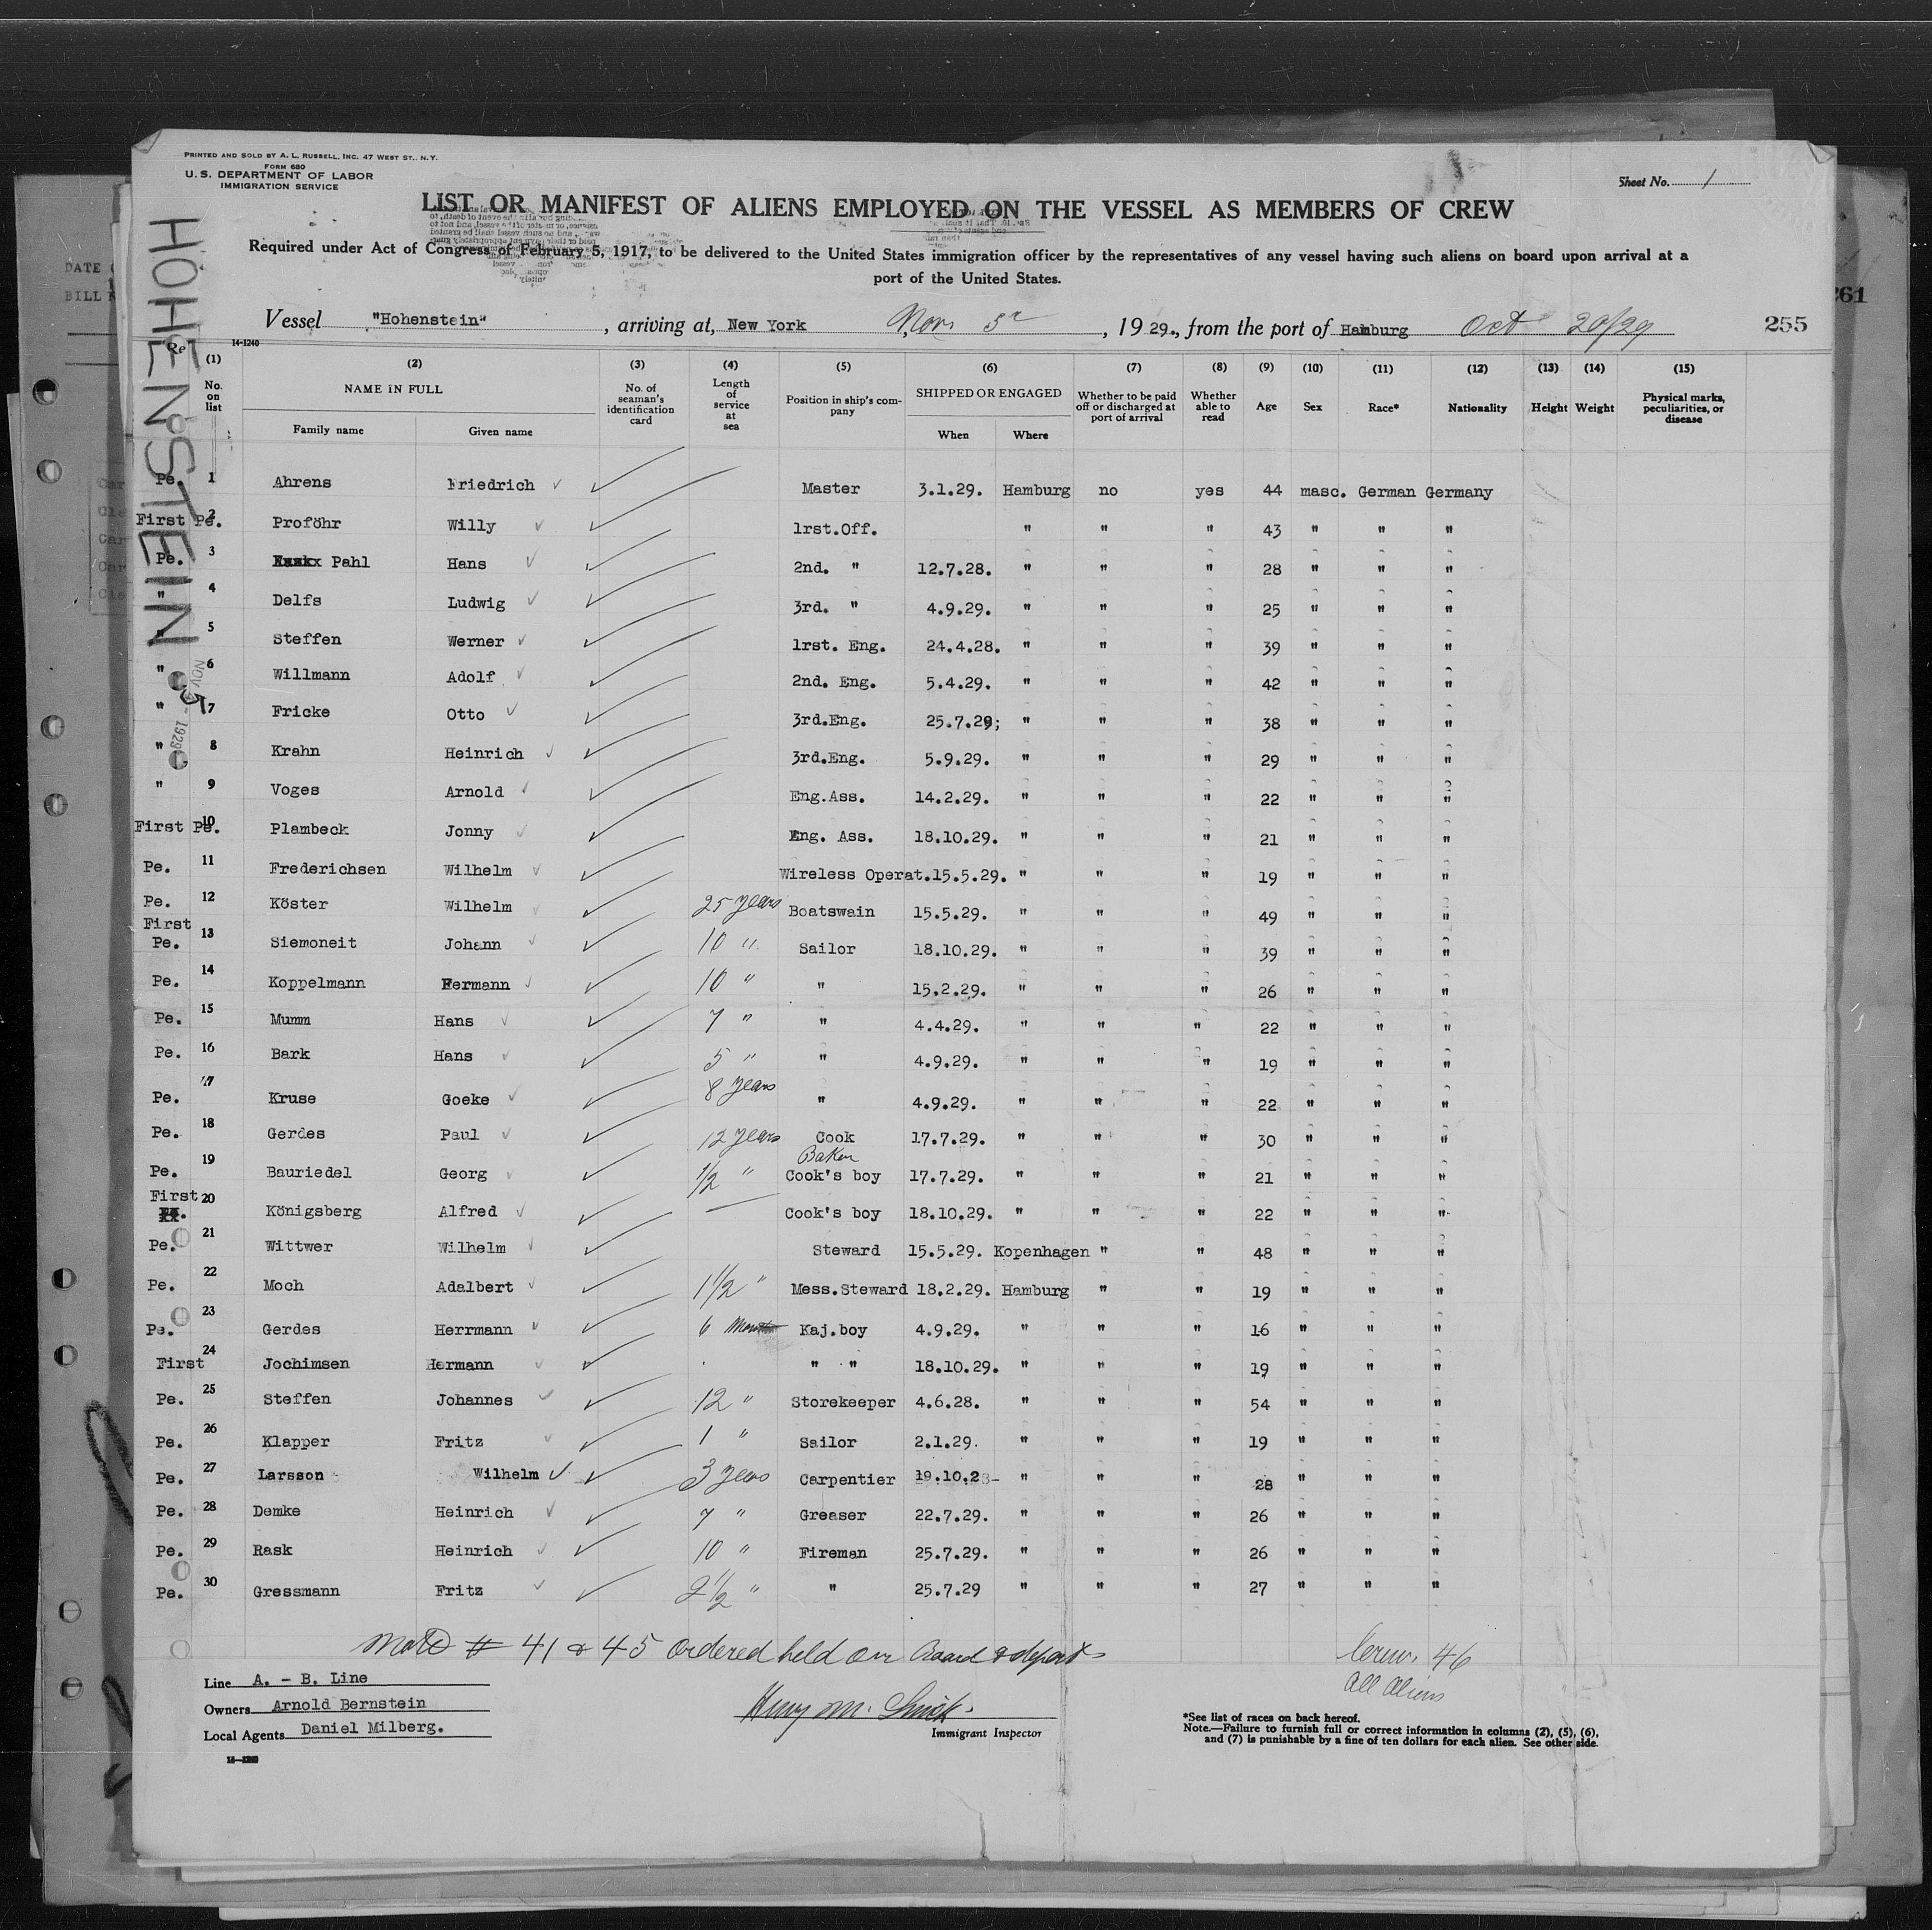 PRINTED AND SOLD BY A. L. RUSSELL, INC. 47 WEST ST., N.Y.
FORM 680
U. S. DEPARTMENT OF LABOR
IMMIGRATION SERVICE
Sheet No. 1
LIST OR MANIFEST OF ALIENS EMPLOYED ON THE VESSEL AS MEMBERS OF CREW
Required under Act of Congress of February 5, 1917, to be delivered to the United States immigration officer by the representatives of any vessel having such aliens on board upon arrival at a
port of the United States.
HOHENSTEIN
NOV 5 - 1929
DATE
BILL
261
Vessel "Hohenstein", arriving at, New York Nov 5, 1929., from the port of Hamburg Oct 20/29
255
14-1240
(1) (2) (3) (4) (5) (6) (7) (8) (9) (10) (11) (12) (13) (14) (15)
No. on list
NAME IN FULL
Family name Given name
No. of seaman's identification card
Length of service at sea
Position in ship's company
SHIPPED OR ENGAGED
When Where
Whether to be paid off or discharged at port of arrival
Whether able to read
Age Sex Race* Nationality Height Weight
Physical marks, peculiarities, or disease
Pe. 1 Ahrens Friedrich Master 3.1.29. Hamburg no yes 44 masc. German Germany
First Pe. 2 Proföhr Willy 1rst.Off. " " " 43 " " "
Pe. 3 Pahl Hans 2nd. " 12.7.28. " " " 28 " " "
" 4 Delfs Ludwig 3rd. " 4.9.29. " " " 25 " " "
" 5 Steffen Werner 1rst. Eng. 24.4.28. " " " 39 " " "
" 6 Willmann Adolf 2nd. Eng. 5.4.29. " " " 42 " " "
" 7 Fricke Otto 3rd.Eng. 25.7.29; " " " 38 " " "
" 8 Krahn Heinrich 3rd.Eng. 5.9.29. " " " 29 " " "
" 9 Voges Arnold Eng.Ass. 14.2.29. " " " 22 " " "
First Pe. 10 Plambeck Jonny Eng. Ass. 18.10.29. " " " 21 " " "
Pe. 11 Frederichsen Wilhelm Wireless Operat. 15.5.29. " " " 19 " " "
Pe. 12 Köster Wilhelm 25 years Boatswain 15.5.29. " " " 49 " " "
First Pe. 13 Siemoneit Johann 10 " Sailor 18.10.29. " " " 39 " " "
Pe. 14 Koppelmann Hermann 10 " " 15.2.29. " " " 26 " " "
Pe. 15 Mumm Hans 7 " " 4.4.29. " " " 22 " " "
Pe. 16 Bark Hans 5 " " 4.9.29. " " " 19 " " "
Pe. 17 Kruse Goeke 8 years " 4.9.29. " " " 22 " " "
Pe. 18 Gerdes Paul 12 years Cook 17.7.29. " " " 30 " " "
Baker
Pe. 19 Bauriedel Georg 1/2 " Cook's boy 17.7.29. " " " 21 " " "
First 20 Königsberg Alfred — Cook's boy 18.10.29. " " " 22 " " "
Pe. 21 Wittwer Wilhelm Steward 15.5.29. Kopenhagen " " 48 " " "
Pe. 22 Moch Adalbert 1 1/2 " Mess.Steward 18.2.29. Hamburg " " 19 " " "
Pe. 23 Gerdes Herrmann 6 Kaj.boy 4.9.29. " " " 16 " " "
First 24 Jochimsen Hermann " " 18.10.29. " " " 19 " " "
Pe. 25 Steffen Johannes 12 " Storekeeper 4.6.28. " " " 54 " " "
Pe. 26 Klapper Fritz 1 " Sailor 2.1.29. " " " 19 " " "
Pe. 27 Larsson Wilhelm 3 years Carpentier 19.10.28- " " " 28 " " "
Pe. 28 Demke Heinrich 7 " Greaser 22.7.29. " " " 26 " " "
Pe. 29 Rask Heinrich 10 " Fireman 25.7.29. " " " 26 " " "
Pe. 30 Gressmann Fritz 2 1/2 " " 25.7.29 " " " 27 " " "
# 41 & 45 Ordered held on Board & deport
Crew 46
All Aliens
Line A. - B. Line
Owners Arnold Bernstein
Local Agents Daniel Milberg.
14-1240
Henry M. Smith
Immigrant Inspector
*See list of races on back hereof.
Note.—Failure to furnish full or correct information in columns (2), (5), (6),
and (7) is punishable by a fine of ten dollars for each alien. See other side.